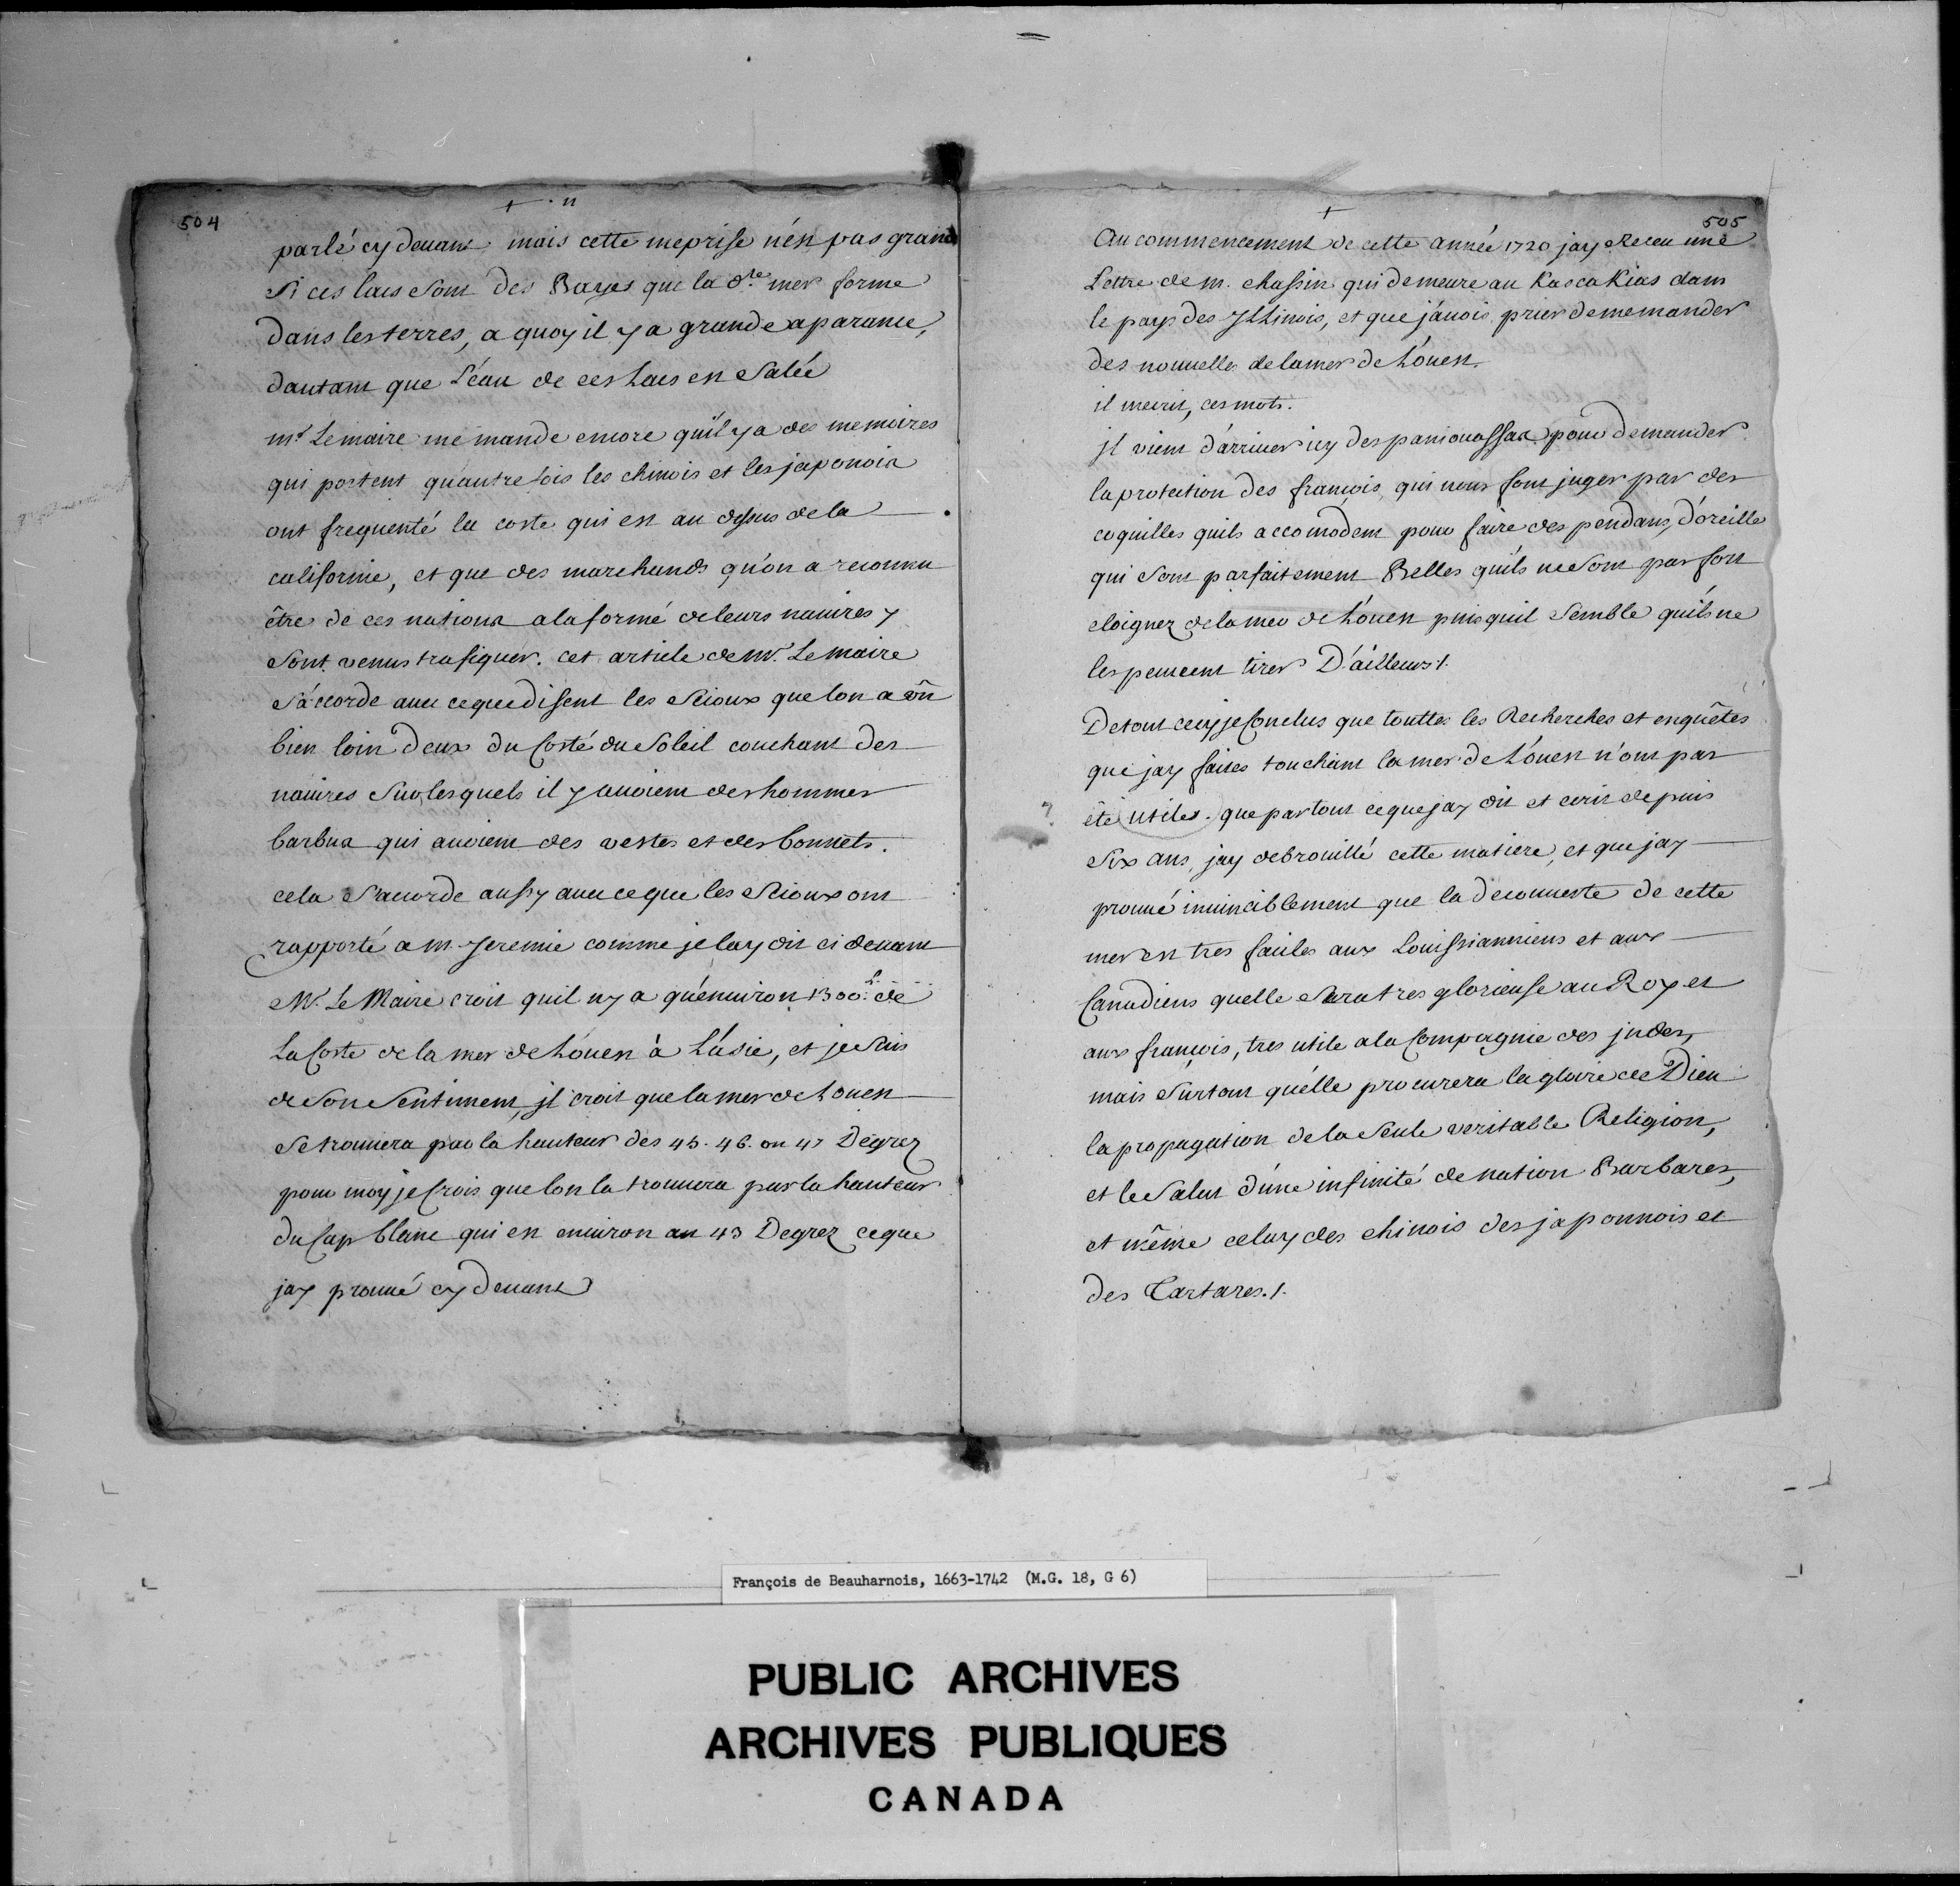 504
parlé cy devant mais cette meprise n'est pas grande
si ces lacs sont des Bayes que la dte mer forme
dans les terres, a quoy il y a grande aparance,
dautant que L'éau de ces Lacs est salée
mr Lemaire me mande encore qu'il y a des memoires
qui portent qu'autrefois les chinois et les japonois
ont frequenté la coste qui est au dessus de la
californie, et que des marchands qu'on a reconnu
être de ces nations a la forme de leurs navires y
sont venus trafiquer. cet article de Mr. Lemaire
s'accorde avec ce que disent les Scioux que lon a vû
bien loin deux du Costé du Soleil couchant des
navires sur lesquels il y avoient des hommes
barbus qui avoient des vestes et des bonnets.
cela s'acorde aussy avec ce que les Scioux ont
rapporté a m. Jeremie comme je lay dit ci devant
Mr. Le Maire croit quil ny a qu'environ 1300 L. de
La Coste de la mer de L'ouest à L'ásie, et je suis
de son sentiment, il croit que la mer de Louest
se trouvera par la hauteur des 45. 46. ou 47 Degrez
pour moy je Crois que lon la trouvera par la hauteur
du Cap blanc qui est environ au 43 Degrez ce que
jay prouvé cy devant
505
Au commencement de cette année 1720 jay Receu une
Lettre de m. chassin qui demeure au Kascakias dans
le pays des Yllinois, et que j'avois prier de me mander
des nouvelles de la mer de L'ouest.
il mecrit, ces mots.
il vient d'arriver icy des paniouassas pour demander
la protection des francois, qui nous font juger par des
coquilles quils accomodent pour faire des pendans, d'oreille
qui sont parfaitement Belles qu'ils ne sont pas fort
eloignez de la mer de L'ouest puis quil semble qu'ils ne
les peuvent tirer D'ailleurs ./.
De tout cecy je Conclus que touttes les Recherches et enquêtes
que jay faites touchant la mer de L'ouest n'ont pas
? été utiles. que par tout ce que jay dit et ecrit depuis
Six ans, jay debrouillé cette matiere, et que jay
prouvé invinciblement que la decouverte de cette
mer est tres faciles aux Louissianniens et aux
Canadiens quelle sera tres glorieuse au Roy et
aux françois, tres utile a la Compagnie des jndes,
mais surtout qu'elle procurera la gloire de Dieu
la propagation de la seule veritable Religion,
et le Salut d'une infinité de nation Barbares,
et même celuy des chinois des japonnois et
des Tartares ./.
François de Beauharnois, 1663-1742 (M.G. 18, G 6)
PUBLIC ARCHIVES
ARCHIVES PUBLIQUES
CANADA